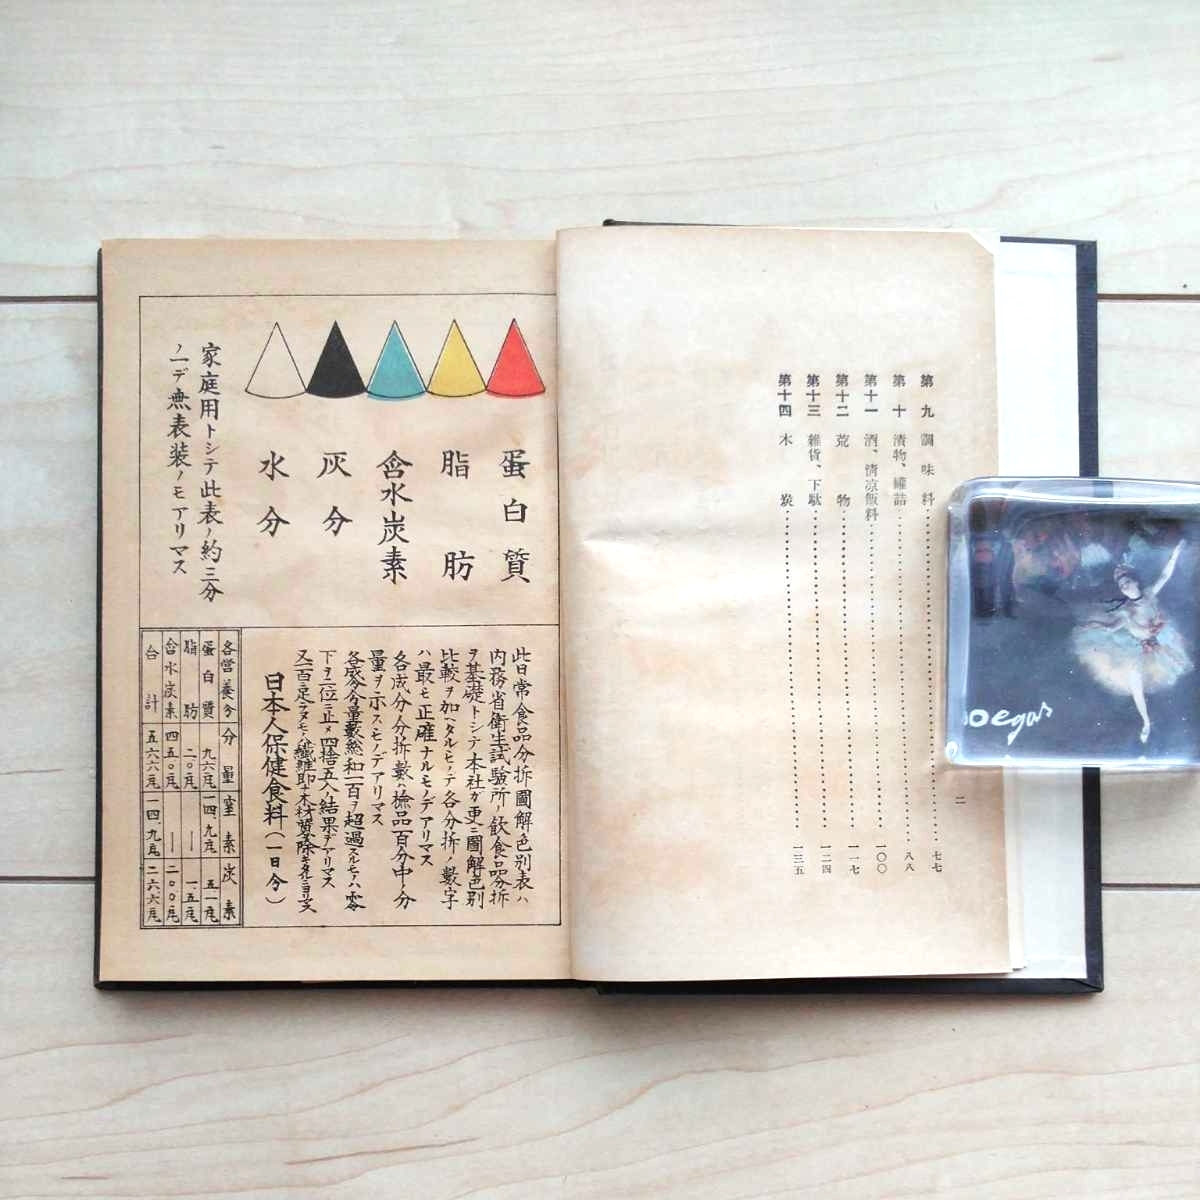 第九 調味料 七七
第十 漬物、罐詰 八八
第十一 酒、清凉飯料 一〇〇
第十二 荒物 一一七
第十三 雜貨、下駄 一二四
第十四 木炭 一三五
二
蛋白質
脂肪
含水炭素
灰分
水分
家庭用トシテ此表ノ約三分
ノ一デ無表装ノモアリマス
此日常食品分拆圖解色別表ハ
内務省衛生試驗所ノ飲食品分拆
ヲ基礎トシテ本社ガ更ニ圖解色別
比較ヲ加ヘタルモノデ各分拆ノ數字
ハ最モ正確ナルモノデアリマス
各成分分拆數ハ檢品百分中ノ分
量ヲ示スモノデアリマス
各成分分量數総和一百ヲ超過スルモノハ零
下ヲ二位ニ止メ四捨五入ノ結果デアリマス
日本人保健食料（一日分）
各営養分 分量 窒素 炭素
蛋白質 九六瓦 一四、九瓦 五一瓦
脂肪 二〇瓦 ― 一五瓦
含水炭素 四五〇瓦 ― 二〇〇瓦
合計 五六六瓦 一四九瓦 二六六瓦
Degas